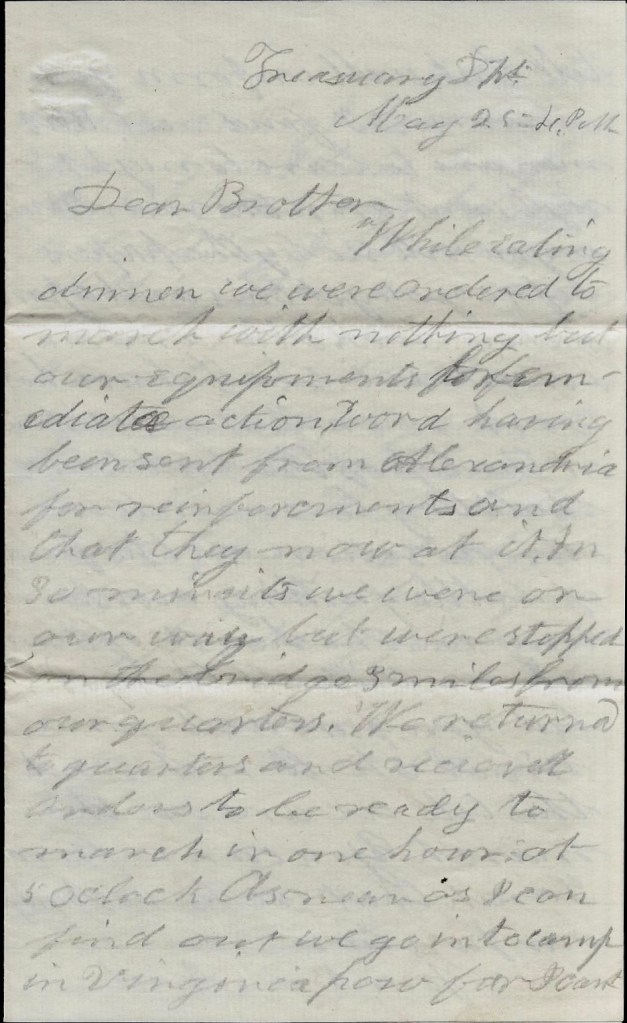 Treasuary Dpt.
May 25 - 4. P.M
Dear Brother
While eating
dinnen we were ordered to
march with nothing but
our equipments for em-
ediate action, word having
been sent from Alexandria
for reinforcments and
that they now at it. In
30 minuits we were on
our way but were stopped
on the bridge 3 miles from
our quarters. We returnd
to quarters and recieved
orders to be ready to
march in one hour at
5 Oclock As near as I can
find out we go into camp
in Virginia how far I cant